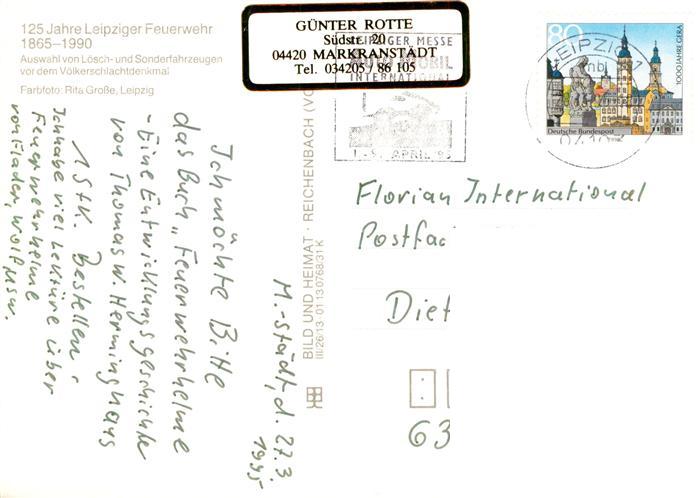 125 Jahre Leipziger Feuerwehr
1865–1990
Auswahl von Lösch- und Sonderfahrzeugen
vor dem Völkerschlachtdenkmal
Farbfoto: Rita Große, Leipzig
GÜNTER ROTTE
Südstr. 20
04420 MARKRANSTÄDT
Tel. 034205 / 86 105
LEIPZIGER MESSE
AUTO MOBIL
INTERNATIONAL
1.-9. APRIL '95
LEIPZIG
80
1000 JAHRE GERA
Deutsche Bundespost
BILD UND HEIMAT · REICHENBACH (VO
III/26/13 · 01 13 0768/31 K
Florian International
Postfac
Diet
63
M.-städt, d. 27.3.
1995
Ich möchte Bitte
das Buch „Feuerwehrhelme
- Eine Entwicklungsgeschichte
von Thomas W. Herminghaus
1 Stk. Bestellen!
Ich habe viel Lektüre über
Feuerwehrhelme
von Flader, Wolf usw.